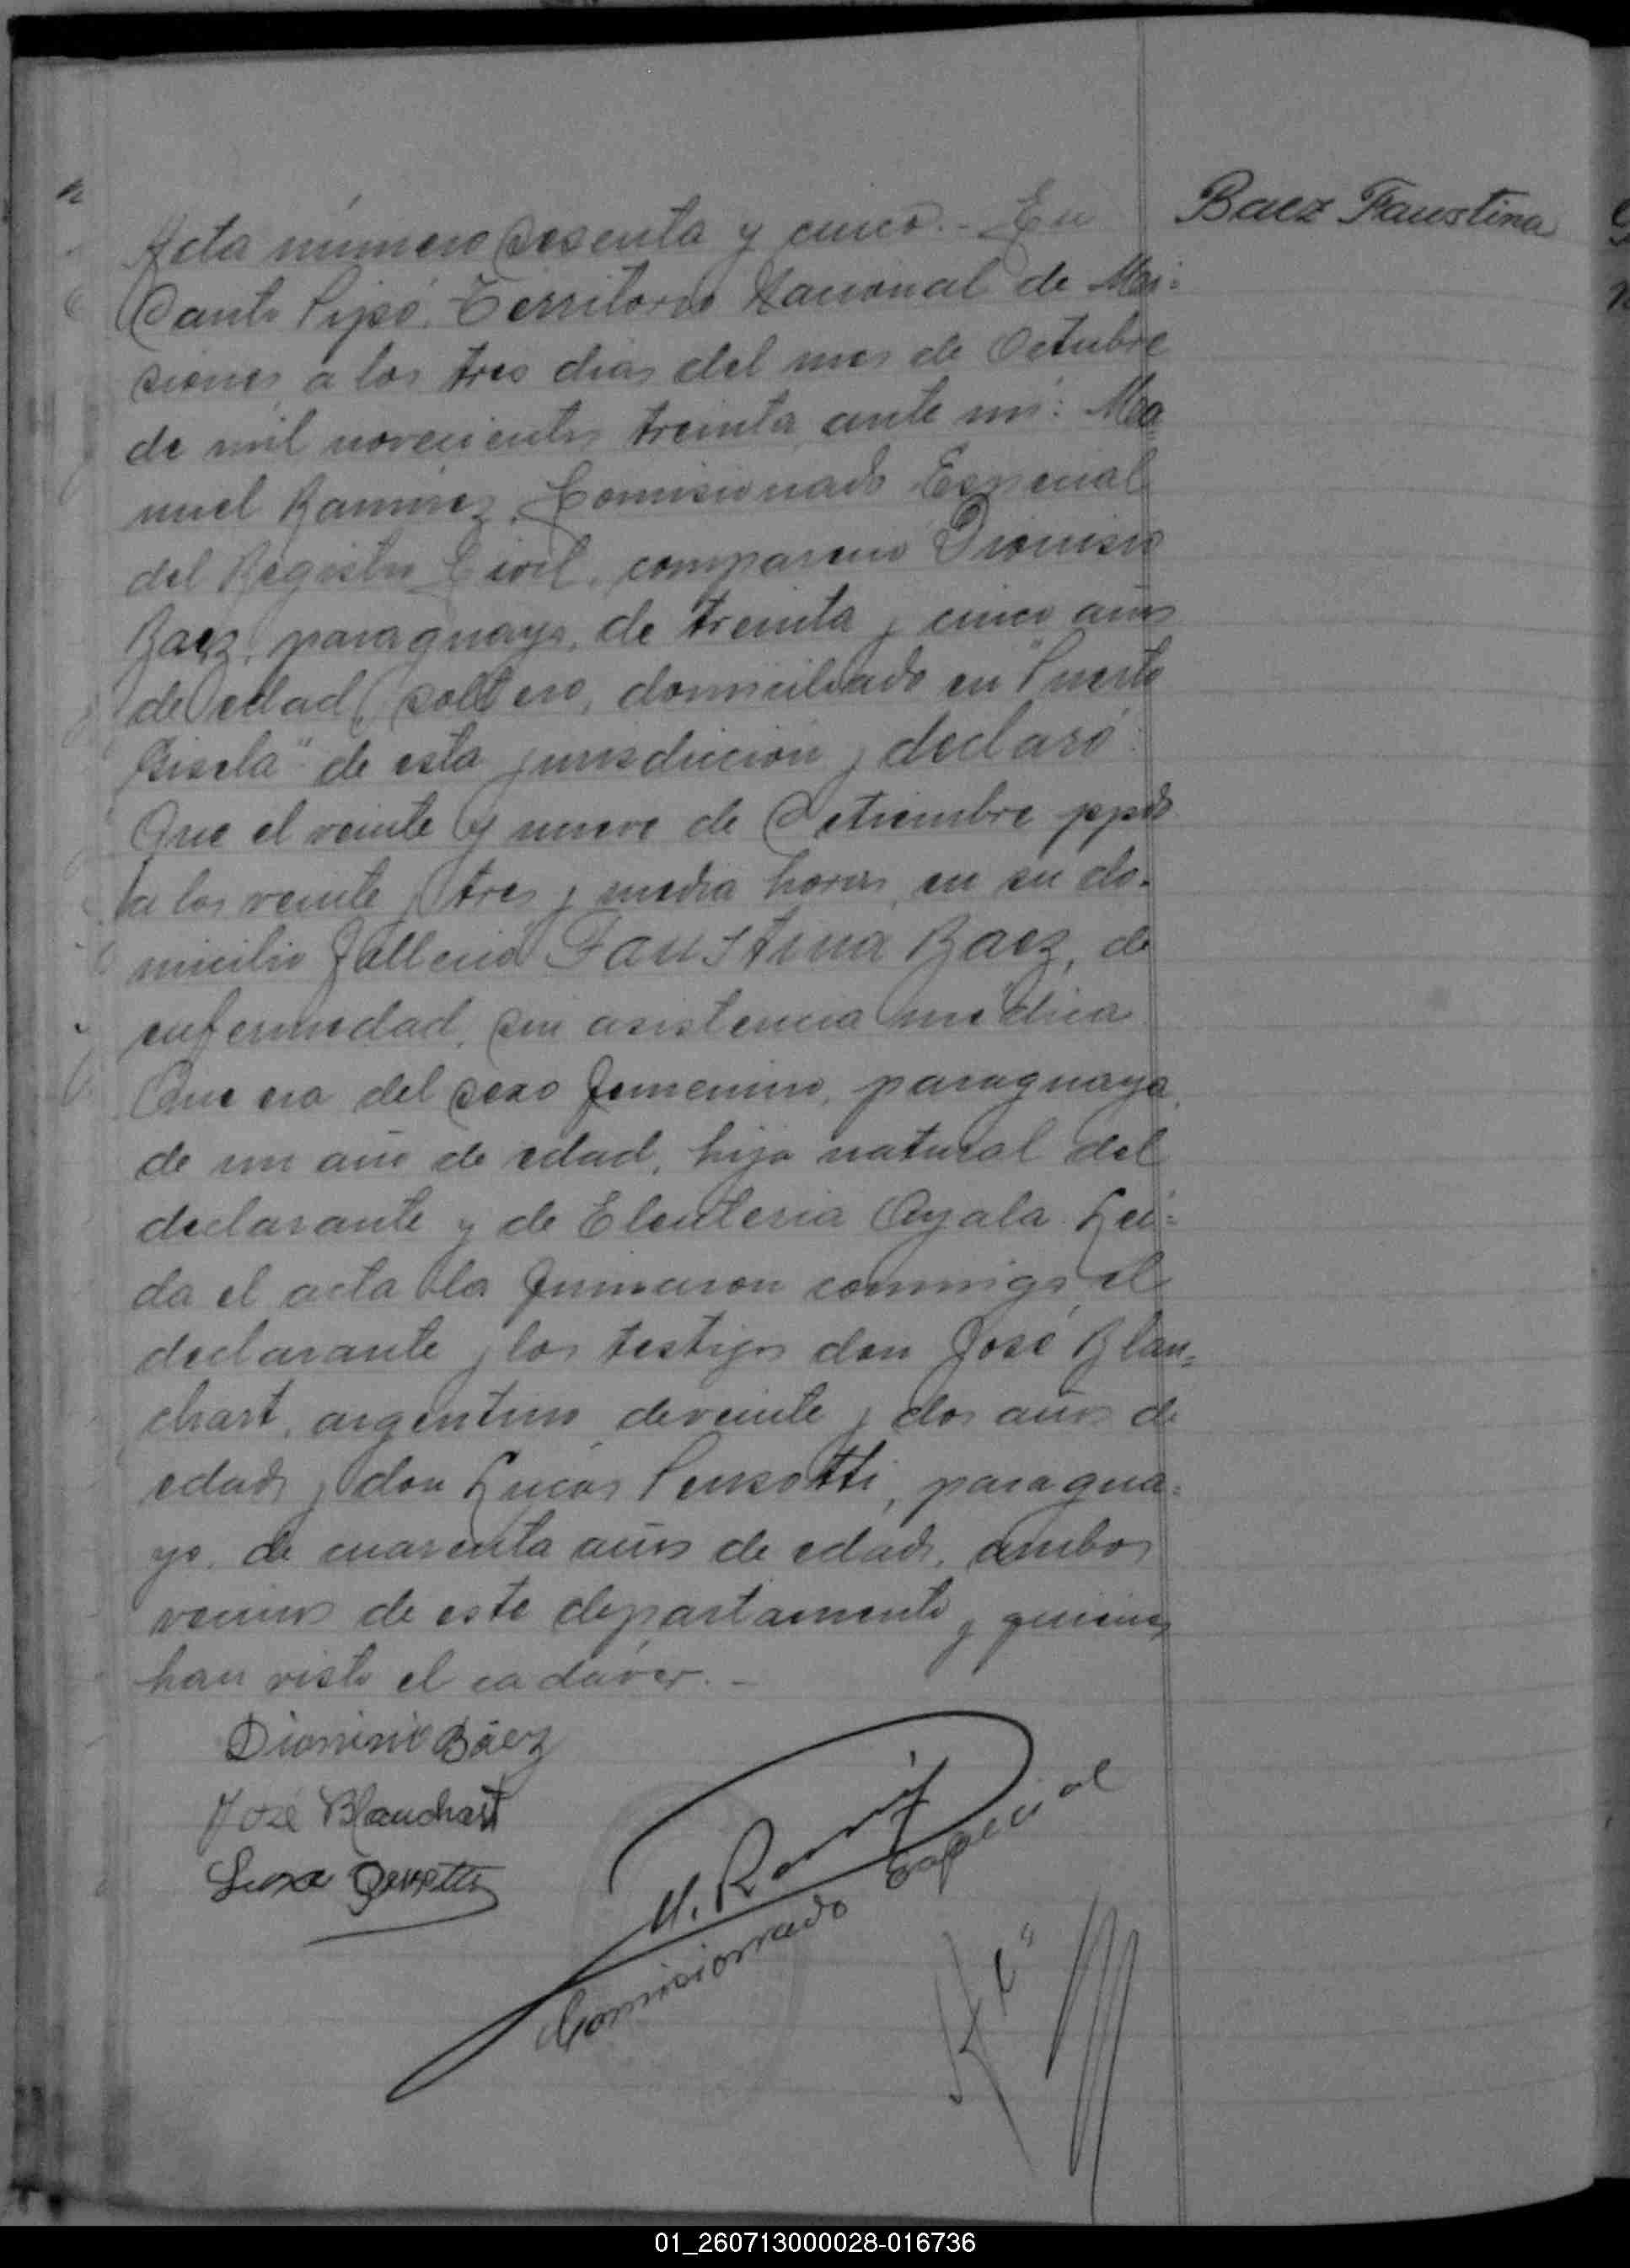 Baez Faustina
Acta número sesenta y cinco.- En
Santo Pipó, Territorio Nacional de Mi-
siones, a los tres dias del mes de Octubre
de mil novecientos treinta, ante mi: Ma-
nuel Ramirez, Comisionado Especial
del Registro Civil, compareció Dionisio
Baez, paraguayo, de treinta y cinco años
de edad, soltero, domiciliado en "Puerto
Gisela" de esta jurisdiccion y declaró:
Que el veinte y nueve de Setiembre ppdo
a las veinte y tres y media horas, en su do-
micilio falleció Faustina Baez, de
enfermedad, sin asistencia médica
Que era del sexo femenino, paraguaya,
de un año de edad, hija natural del
declarante y de Eleuteria Ayala. Lei-
da el acta la firmaron conmigo, el
declarante y los testigos don José Blan-
chart, argentino, de veinte y dos años de
edad y don Lucas Pensotti, paragua-
yo, de cuarenta años de edad, ambos
vecinos de este departamento y quienes
han visto el cadáver.-
Dionisio Báez
José Blanchart
M. Ramirez
Comisionado Especial
01_260713000028-016736